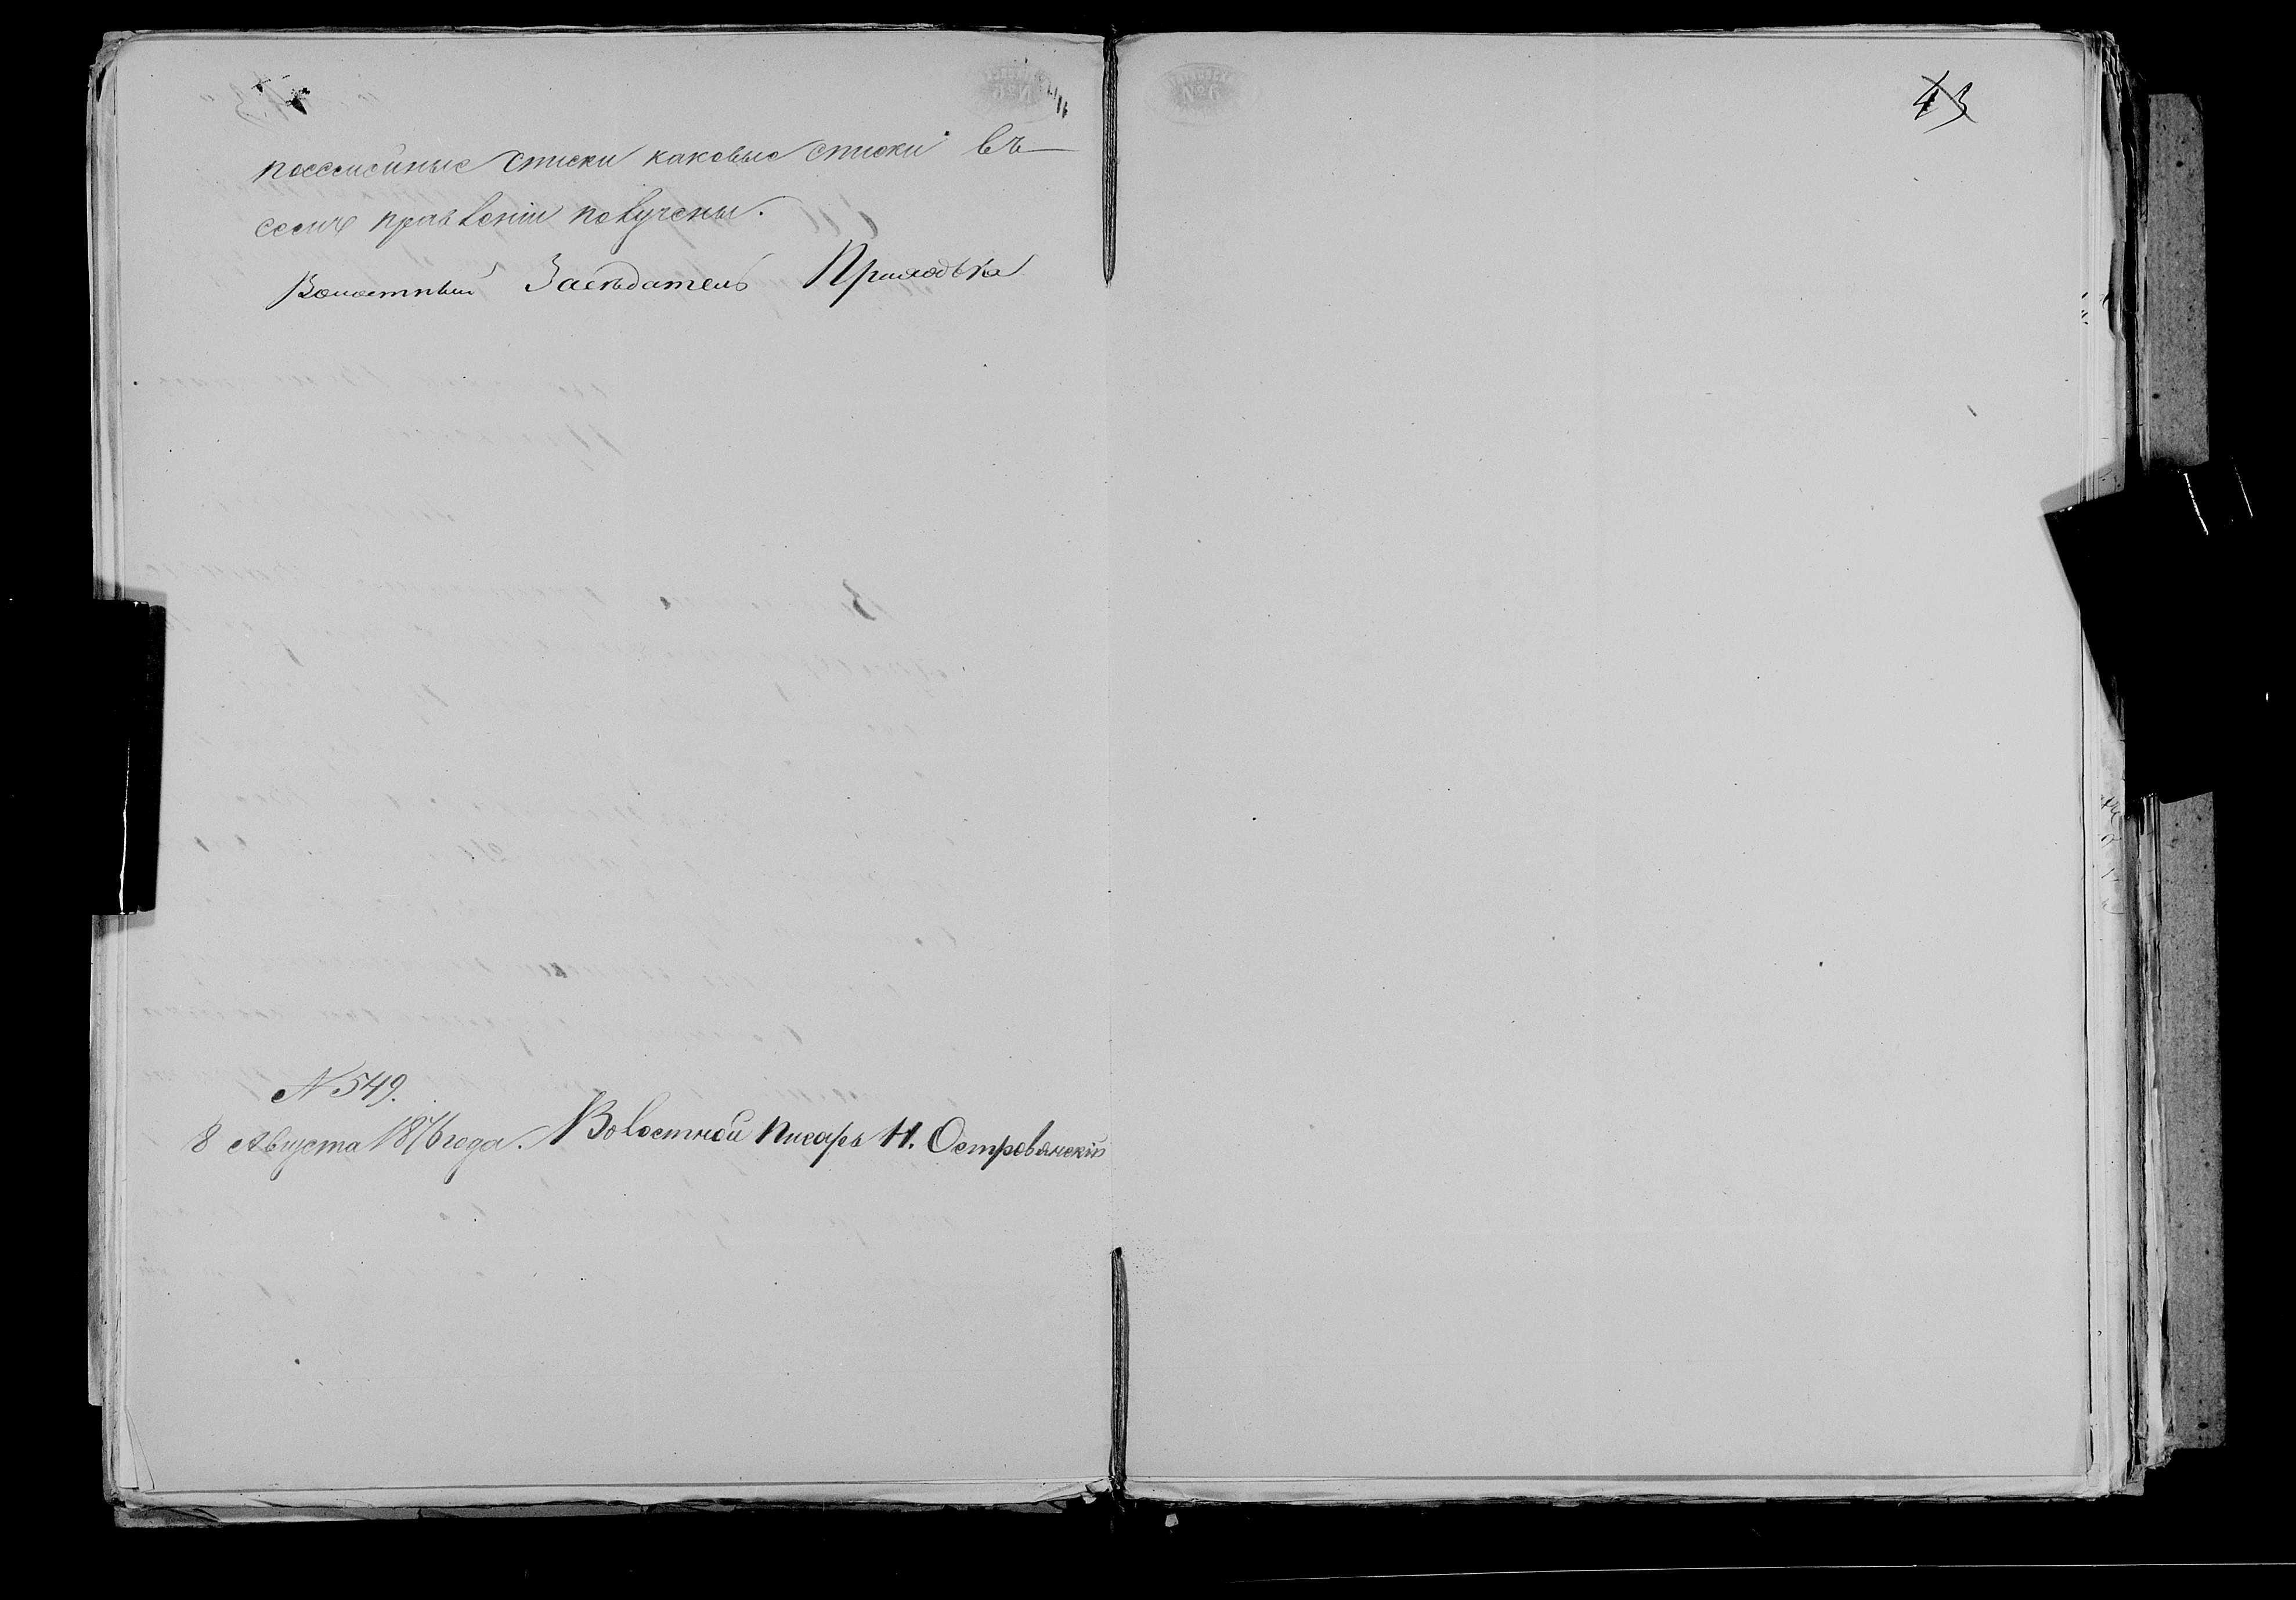 посемейные списки каковые списки въ
семъ правленіи получены.
Волостный Засѣдатель Приходько
N 549.
8 Августа 1876 года. Волостной Писарь Н. Островянскій
43
№ 6